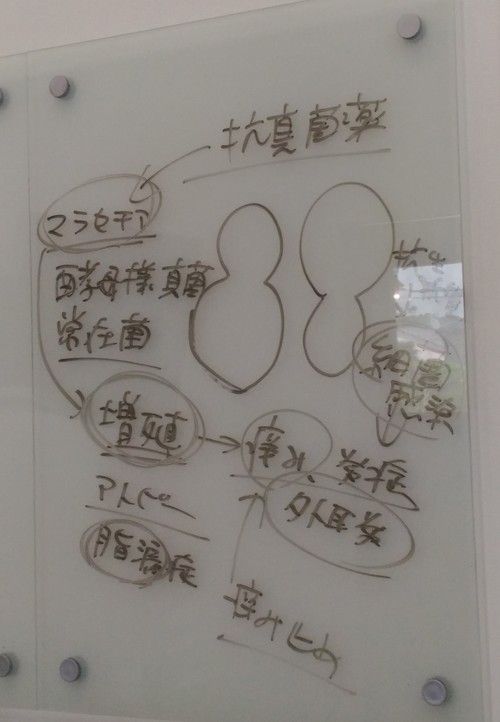 抗真菌薬
マラセチア
酵母様真菌
常在菌
細菌
感染
増殖
痒み、炎症
外耳炎
アトピー
脂漏症
痒み止め